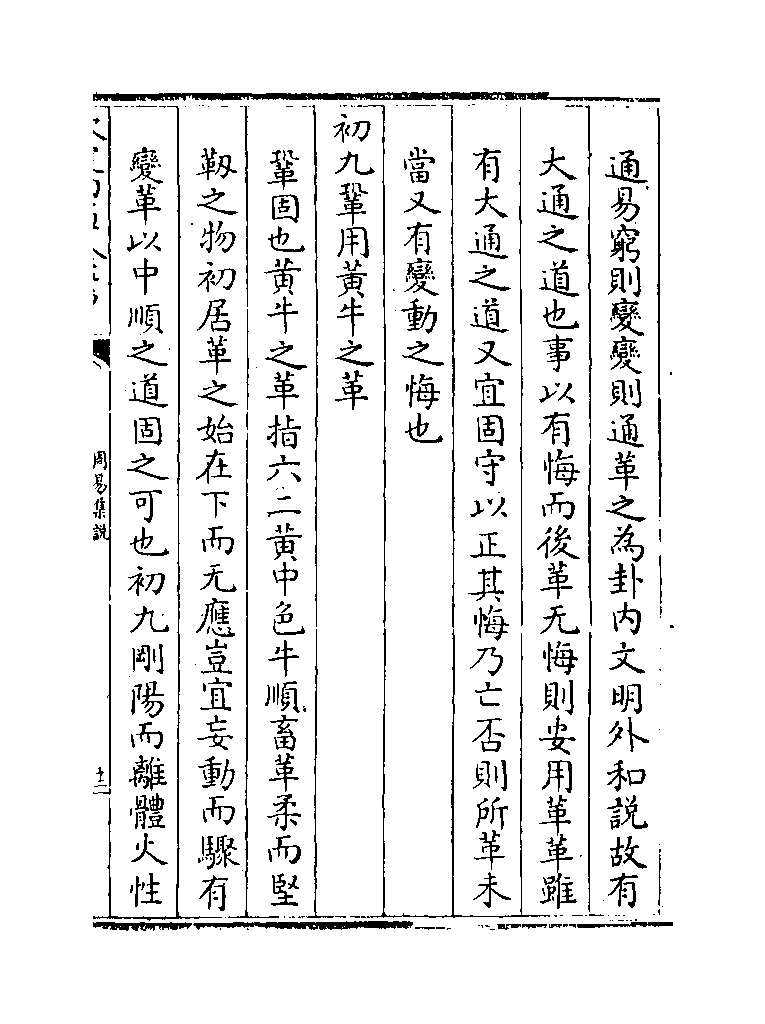 通易窮則變變則通革之為卦内文明外和説故有
大通之道也事以有悔而後革无悔則安用革革雖
有大通之道又宜固守以正其悔乃亡否則所革未
當又有變動之悔也
初九鞏用黄牛之革
鞏固也黄牛之革指六二黄中色牛順畜革柔而堅
靭之物初居革之始在下而无應豈宜妄動而驟有
變革以中順之道固之可也初九剛陽而離體火性
周易集説
十二